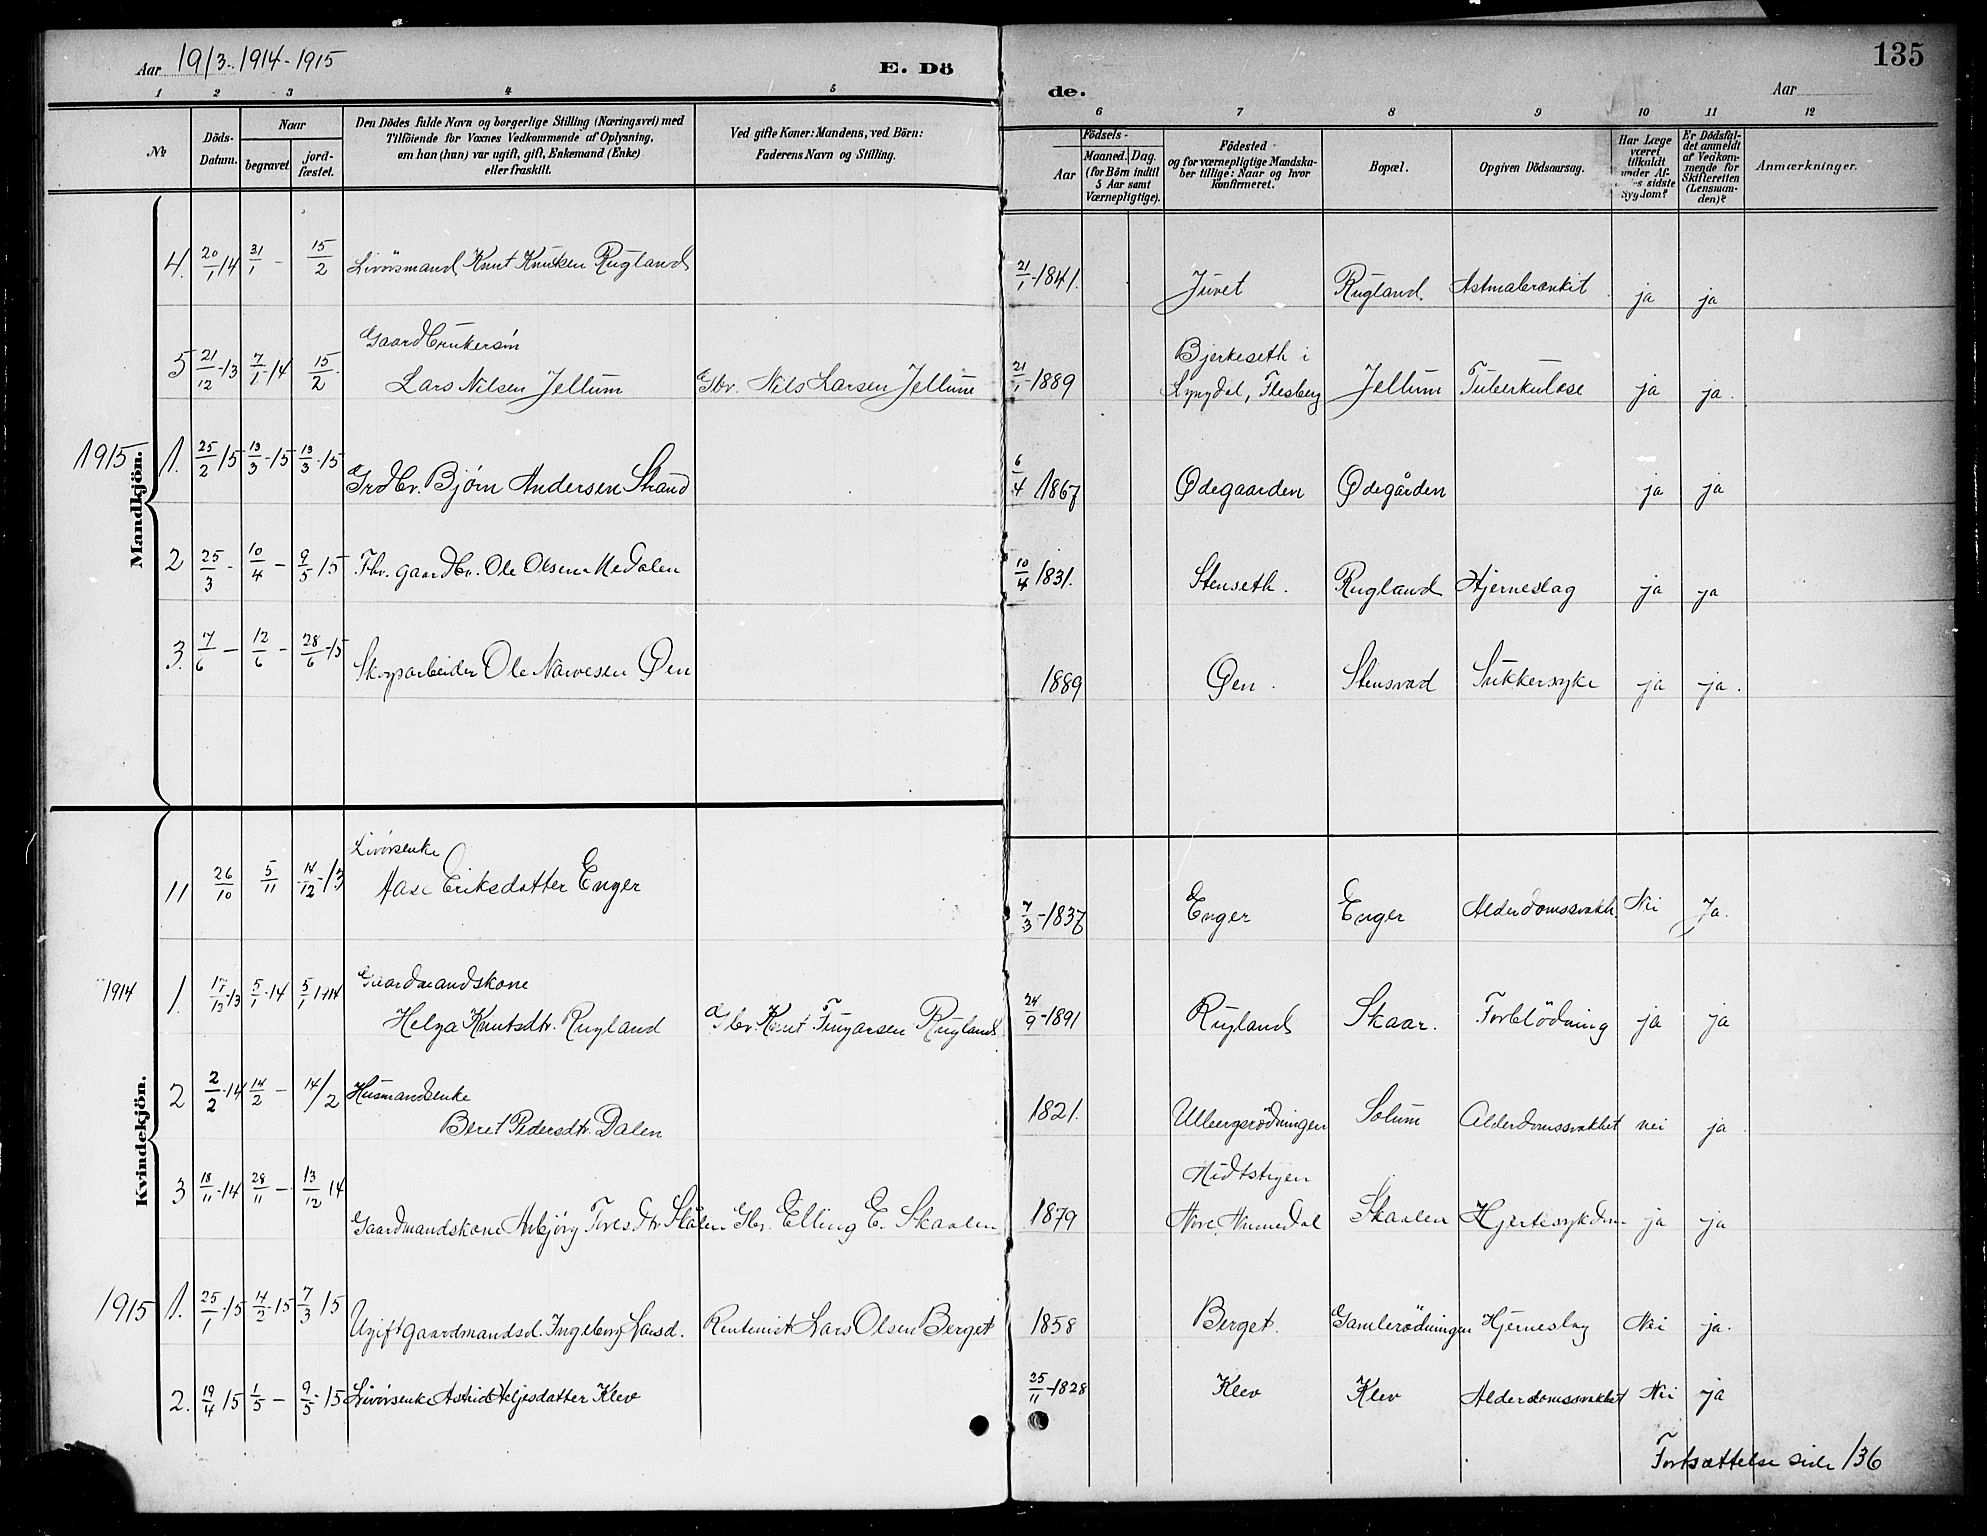 Aar 1913. 1914-1915
E. Dö
de.
Aar
135
1 2 3 4 5 6 7 8 9 10 11 12
No
Döds-Datum.
Naar
begravet.
jord-fæstet.
Den Dödes fulde Navn og borgerlige Stilling (Næringsvei) med
Tilföiende for Voxnes Vedkommende af Oplysning,
om han (hun) var ugift, gift, Enkemand (Enke)
eller fraskilt.
Ved gifte Koner: Mandens, ved Börn:
Faderens Navn og Stilling.
Födsels-
Aar
Maaned. Dag.
(for Börn indtil
5 Aar samt
Værnepligtige).
Födested
og for værnepligtige Mandska-
ber tillige: Naar og hvor
konfirmeret.
Bopæl.
Opgiven Dödsaarsag.
Har Læge
været
tilkaldt
under Af-
s sidste
Sygdom?
Er Dödsfal-
det anmeldt
af Vedkom-
mende for
Skifteretten
(Lensman-
den)?
Anmærkninger.
Mandkjön.
4. 20/1 14 31/1 - 15/2 Livörsmand Knut Knutsen Rugland 21/1-1841. Juvet Rugland Astmabronkit ja ja
Gaardbrukersön Bjerkeseth i
5 21/12-13 7/1-14 15/2 Lars Nilsen Jellum Gbr. Nils Larsen Jellum 21/1-1889 Lyngdal, Flesberg Jellum Tuberkulose ja ja.
1915 1. 25/2 15 13/3-15 13/3-15 Grdbr. Bjørn Andersen Strand 6/4 1867 Ødegaarden Ødegården ja ja
2 25/3 - 10/4 - 9/5 15 Fhv. gaardbr. Ole Olsen Medalen 10/4 1831. Stenseth. Rugland Hjerneslag ja ja
3. 7/6 - 12/6 - 28/6-15 Skogsarbeider Ole Narvesen Øen 1889 Øen. Stensvad Sukkersyke ja ja.
Kvindekjön.
Livörsenke
11 26/10 5/11 14/12-13 Aase Eriksdatter Enger 7/3-1837 Enger Enger Alderdomssvakh. Nei Ja.
Gaardmandskone
1914 1. 17/12-13 5/1-14 5/1-14 Helga Knutsdtr. Rugland Gbr. Knut Fingarsen Rugland 24/9-1891 Rugland Skaar. Forblödning ja ja
Husmandsenke
2 2/2-14 14/2 - 14/2 Beret Pedersdtr. Dalen 1821. Ulbergsrödningen Solum Alderdomssvakhet nei ja
Midtstigen
3 18/11-14 28/11 - 13/12 14 Gaardmandskone Asbjörg Toresdtr Skålen Gbr. Elling E. Skaalen 1879 Nore, Numedal Skaalen Hjertesykdom ja ja
1915 1. 25/1-15 14/2-15 7/3 15 Ugift gaardmandsd. Ingeborg Larsd. Rentenist Lars Olsen Berget 1858 Berget. Gamlerödningen Hjerneslag Nei ja.
2. 19/4 15 1/5 - 9/5-15 Livörsenke Astrid Heljesdatter Klev 25/11-1828 Klev Klev Alderdomssvakhet Nei ja
Fortsættelse side 136